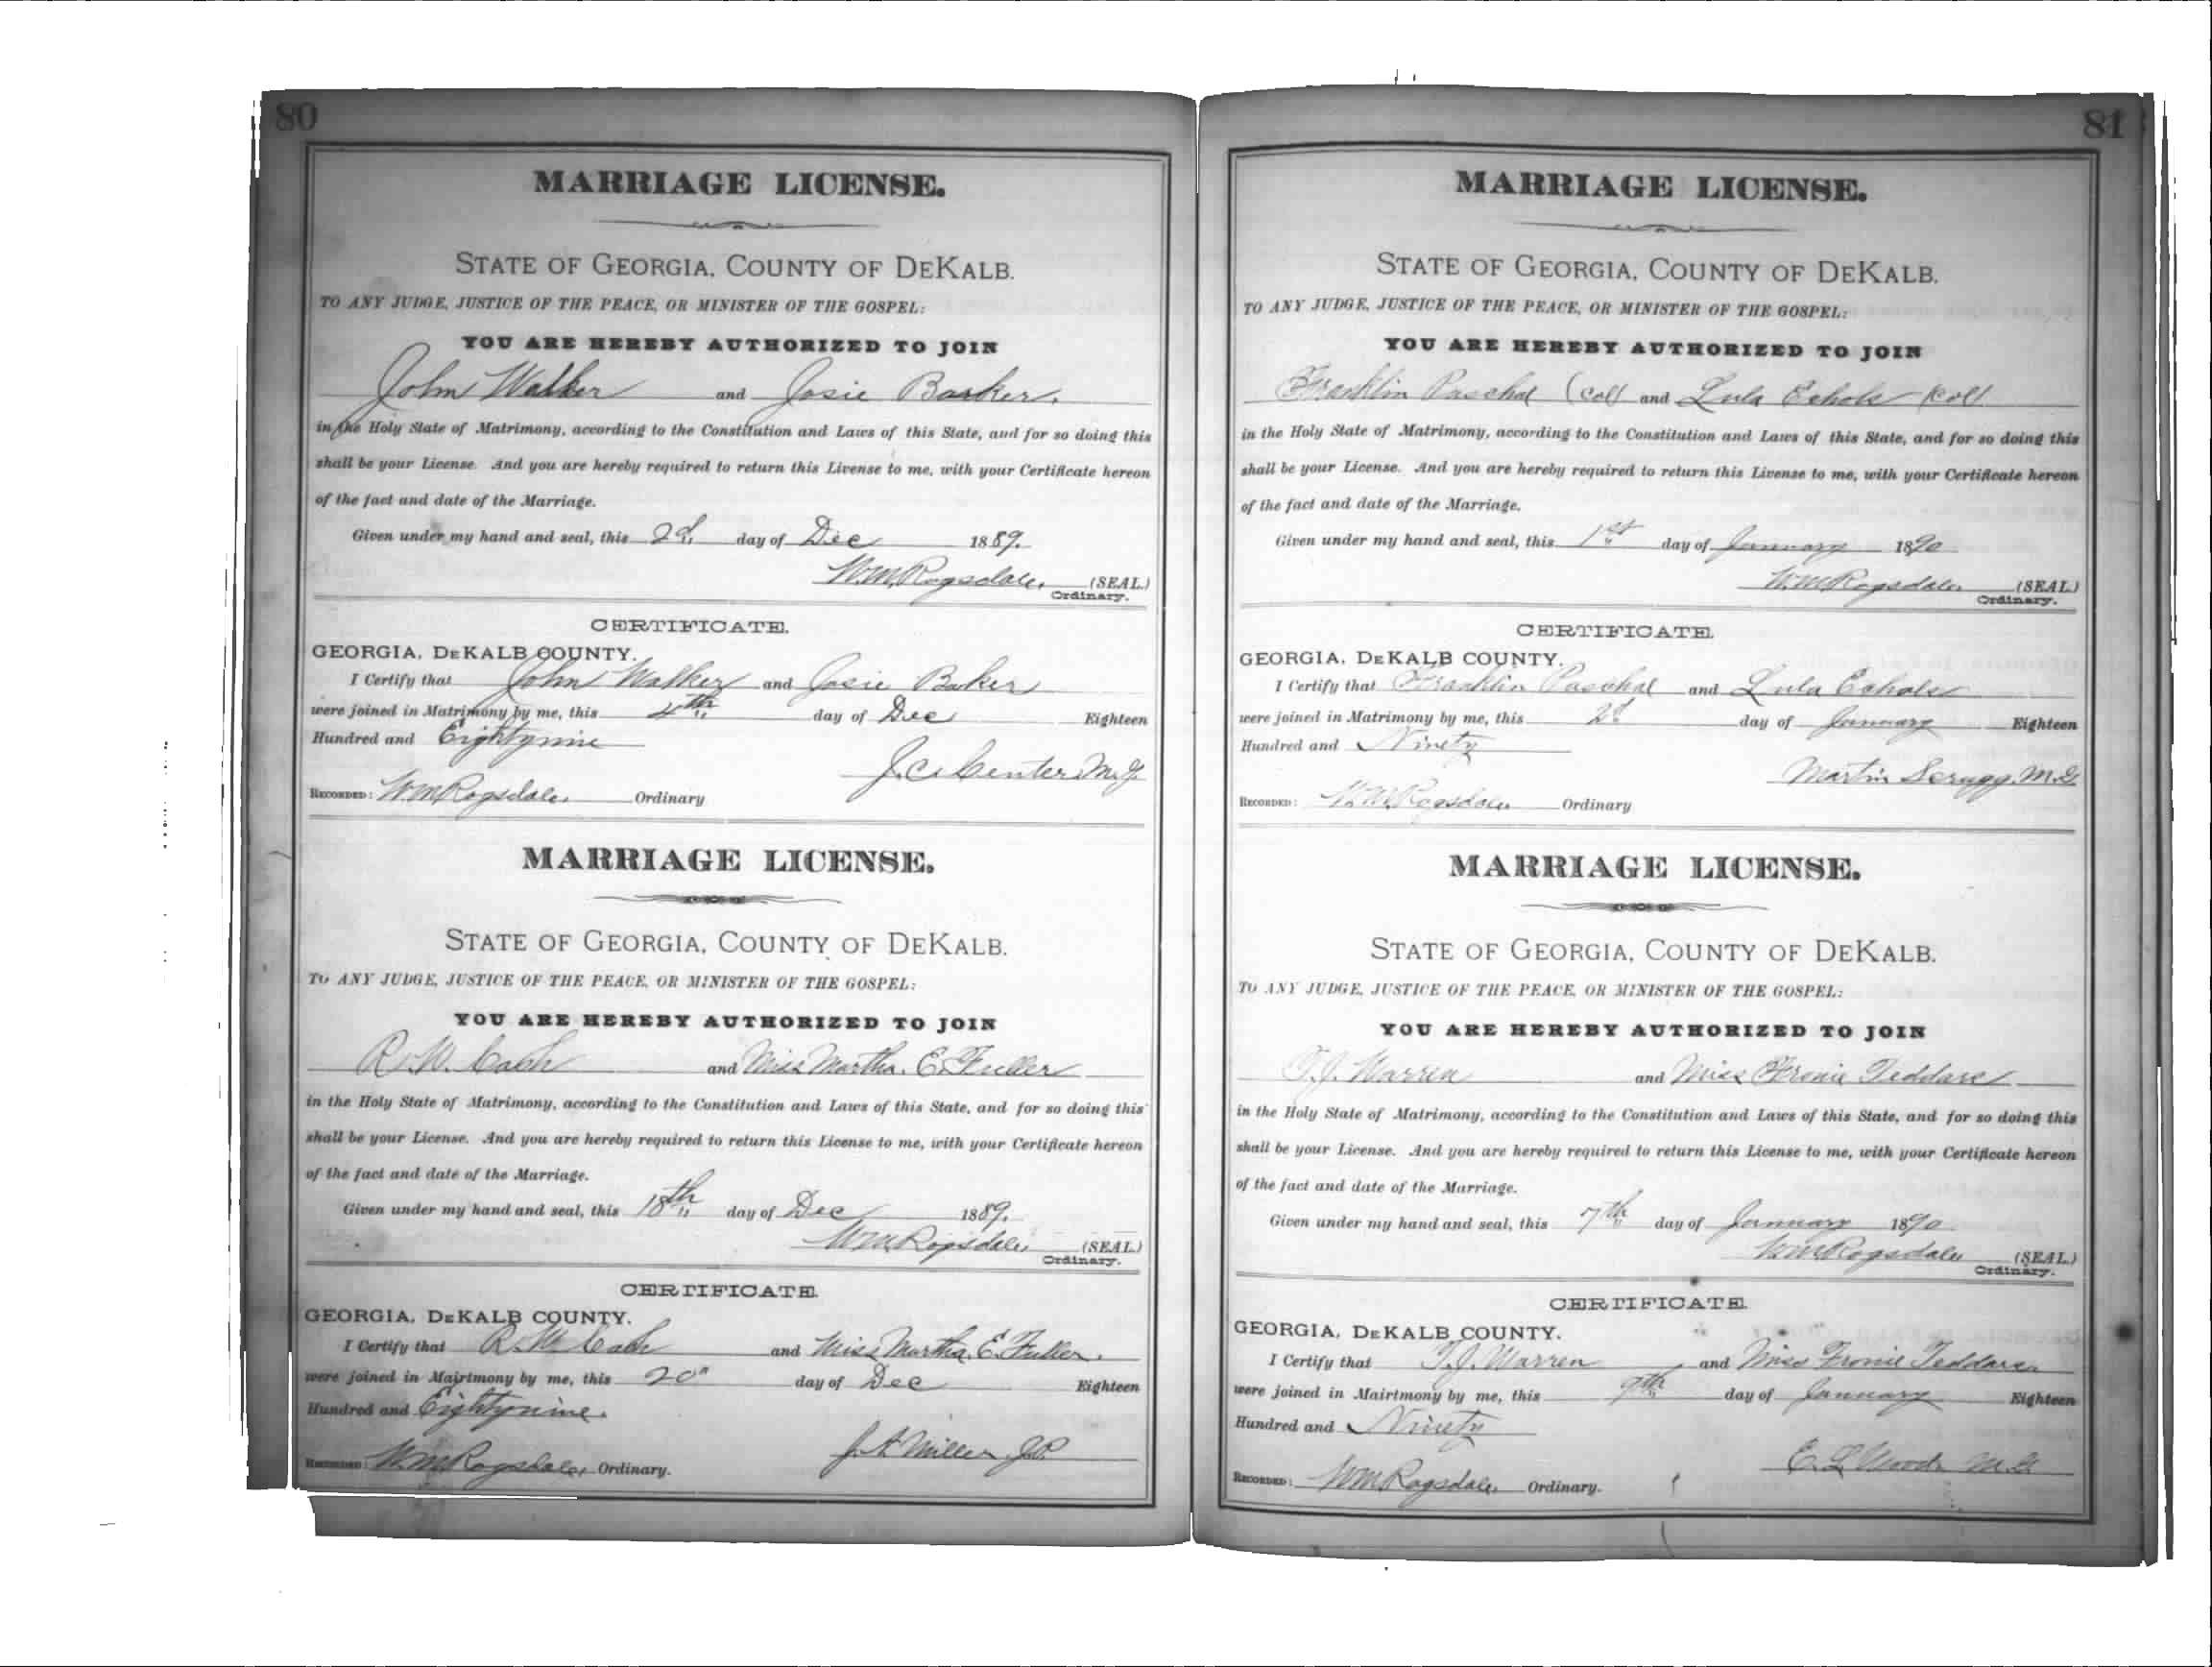 80
MARRIAGE LICENSE.
STATE OF GEORGIA, COUNTY OF DEKALB.
TO ANY JUDGE, JUSTICE OF THE PEACE, OR MINISTER OF THE GOSPEL:
YOU ARE HEREBY AUTHORIZED TO JOIN
John Walker and Josie Barker.
in the Holy State of Matrimony, according to the Constitution and Laws of this State, and for so doing this
shall be your License. And you are hereby required to return this License to me, with your Certificate hereon
of the fact and date of the Marriage.
Given under my hand and seal, this 2d day of Dec 1889.
WM Ragsdale, (SEAL.)
Ordinary.
CERTIFICATE.
GEORGIA, DEKALB COUNTY.
I Certify that John Walker and Josie Baker
were joined in Matrimony by me, this 4th day of Dec Eighteen
Hundred and Eightynine
J.C. Center M.G.
RECORDED: WM Ragsdale, Ordinary
MARRIAGE LICENSE.
STATE OF GEORGIA, COUNTY OF DEKALB.
TO ANY JUDGE, JUSTICE OF THE PEACE, OR MINISTER OF THE GOSPEL:
YOU ARE HEREBY AUTHORIZED TO JOIN
R.W. Cash and Miss Martha. E. Fuller
in the Holy State of Matrimony, according to the Constitution and Laws of this State, and for so doing this
shall be your License. And you are hereby required to return this License to me, with your Certificate hereon
of the fact and date of the Marriage.
Given under my hand and seal, this 18th day of Dec 1889.
WM Ragsdale, (SEAL.)
Ordinary.
CERTIFICATE.
GEORGIA, DEKALB COUNTY.
I Certify that R.W. Cash and Miss Martha. E. Fuller.
were joined in Mairtmony by me, this 20" day of Dec Eighteen
Hundred and Eightynine.
J. A Miller J.P.
RECORDED: WM Ragsdale, Ordinary.
81
MARRIAGE LICENSE.
STATE OF GEORGIA, COUNTY OF DEKALB.
TO ANY JUDGE, JUSTICE OF THE PEACE, OR MINISTER OF THE GOSPEL:
YOU ARE HEREBY AUTHORIZED TO JOIN
Franklin Paschal (Col) and Lula Echols (Col)
in the Holy State of Matrimony, according to the Constitution and Laws of this State, and for so doing this
shall be your License. And you are hereby required to return this License to me, with your Certificate hereon
of the fact and date of the Marriage.
Given under my hand and seal, this 1st day of January 1890
WM Ragsdale, (SEAL.)
Ordinary.
CERTIFICATE.
GEORGIA, DEKALB COUNTY.
I Certify that Franklin Paschal and Lula Echols
were joined in Matrimony by me, this 2d day of January Eighteen
Hundred and Ninety
Martin Scrugg, M.G.
RECORDED: WM Ragsdale, Ordinary
MARRIAGE LICENSE.
STATE OF GEORGIA, COUNTY OF DEKALB.
TO ANY JUDGE, JUSTICE OF THE PEACE, OR MINISTER OF THE GOSPEL:
YOU ARE HEREBY AUTHORIZED TO JOIN
T.J. Warren and Miss Fronie
in the Holy State of Matrimony, according to the Constitution and Laws of this State, and for so doing this
shall be your License. And you are hereby required to return this License to me, with your Certificate hereon
of the fact and date of the Marriage.
Given under my hand and seal, this 7th day of January 1890
WM Ragsdale (SEAL.)
Ordinary.
CERTIFICATE.
GEORGIA, DEKALB COUNTY.
I Certify that T.J. Warren and Miss Fronie
were joined in Mairtmony by me, this 9th day of January Eighteen
Hundred and Ninety
E. L Wood M.G
RECORDED: WM Ragsdale, Ordinary.